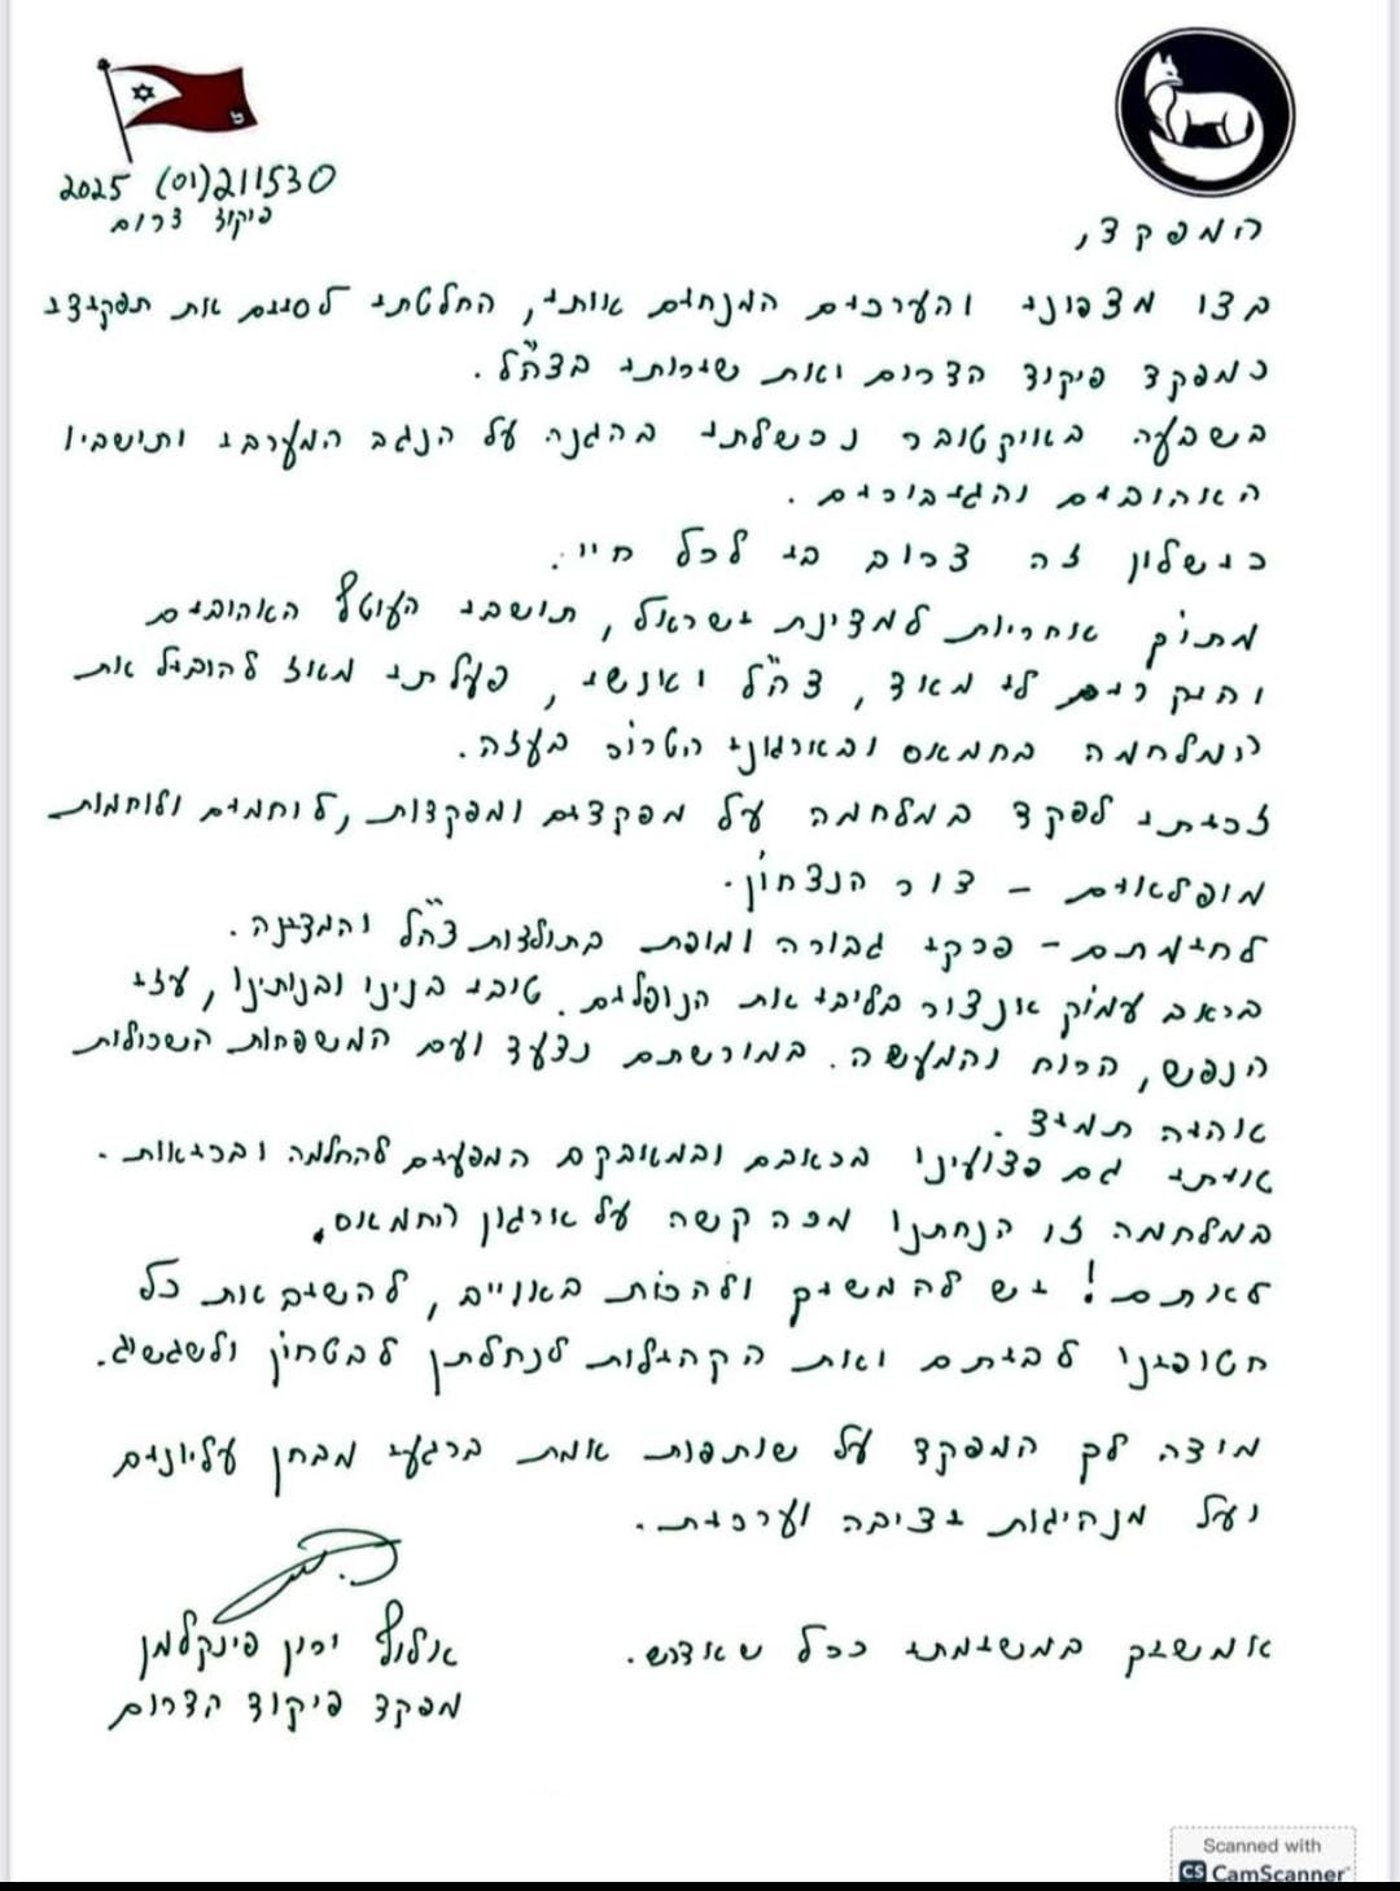 211530(01) 2025
פיקוד דרום
המפקד,
בצו מצפוני והערכים המנחים אותי, החלטתי לסיים את תפקידי
כמפקד פיקוד הדרום ואת שירותי בצה"ל.
בשבעה באוקטובר נכשלתי בהגנה על הנגב המערבי ותושביו
האהובים והגיבורים.
כישלון זה צרוב בי לכל חיי.
מתוך אחריות למדינת ישראל, תושבי העוטף האהובים
והיקרים לי מאד, צה"ל ואנשי, פעלתי מאז להוביל את
המלחמה בחמאס ובארגוני הטרור בעזה.
זכיתי לפקד במלחמה על מפקדים ומפקדות, לוחמים ולוחמות
מופלאים - דור הנצחון.
לחימתם - פרקי גבורה ומופת בתולדות צה"ל והמדינה.
בכאב עמוק אנצור בליבי את הנופלים. טובי בנינו ובנותינו, עזי
הנפש, הרוח והמעשה. במורשתם נצעד ועם המשפחות השכולות
אהיה תמיד.
איתי גם פצועינו בכאבם ובמאבקם המפעים להחלמה ובריאות.
במלחמה זו הנחתנו מכה קשה על ארגון החמאס.
לא תם! יש להמשיך ולהכות באוייב, להשיב את כל
חטופינו לביתם ואת הקהילות לנחלתן לבטחון ולשגשוג.
מודה לך המפקד על שותפות אמת ברגעי מבחן עליונים
ועל מנהיגות יציבה וערכית.
אמשיך במשימתי ככל שאדרש.
אלוף ירון פינקלמן
מפקד פיקוד הדרום
Scanned with
CS CamScanner